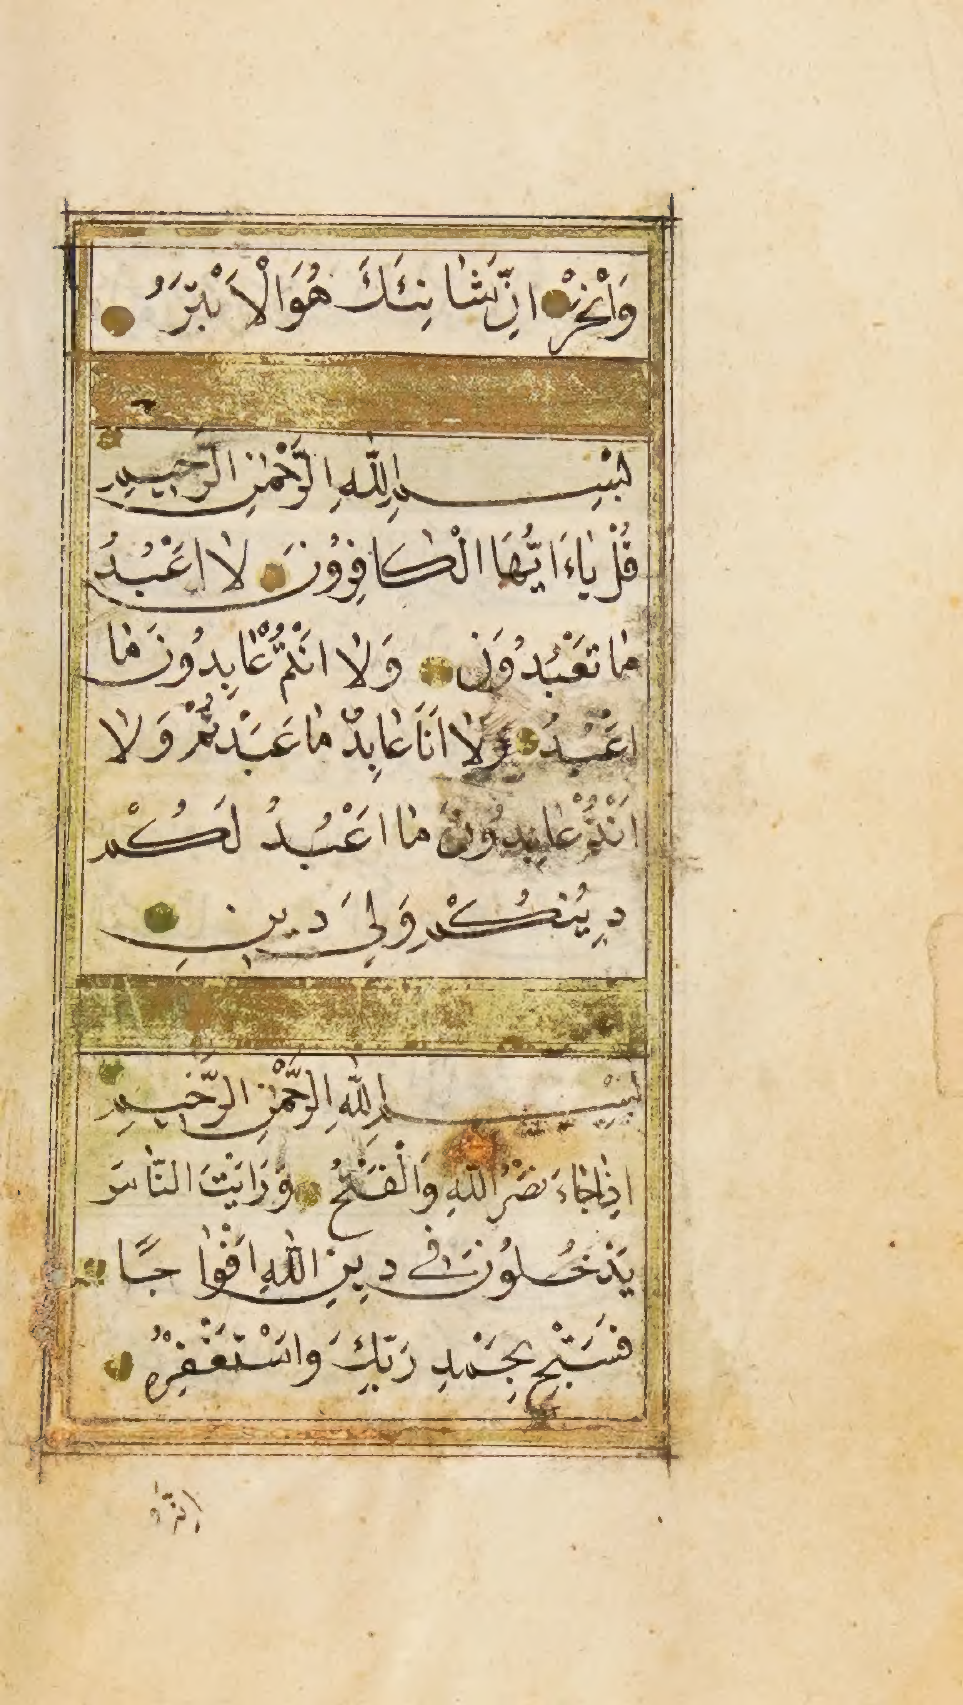 وَانْحَرْ اِنَّ شَانِئَكَ هُوَ الْاَبْتَرُ
بِسْمِ اللّٰهِ الرَّحْمٰنِ الرَّحِيمِ
قُلْ يَاءَ ايُّهَا الْكَافِرُونَ لَا اَعْبُدُ
مَا تَعْبُدُونَ وَلَا اَنْتُمْ عَابِدُونَ مَا
اَعْبُدُ وَلَا اَنَا عَابِدٌ مَا عَبَدْتُمْ وَلَا
اَنْتُمْ عَابِدُونَ مَا اَعْبُدُ لَكُمْ
دِينُكُمْ وَلِيَ دِينِ
بِسْمِ اللّٰهِ الرَّحْمٰنِ الرَّحِيمِ
اِذَا جَاءَ نَصْرُ اللّٰهِ وَالْفَتْحُ وَرَاَيْتَ النَّاسَ
يَدْخُلُونَ فِى دِينِ اللّٰهِ اَفْوَاجًا
فَسَبِّحْ بِحَمْدِ رَبِّكَ وَاسْتَغْفِرْهُ
اِنَّهُ